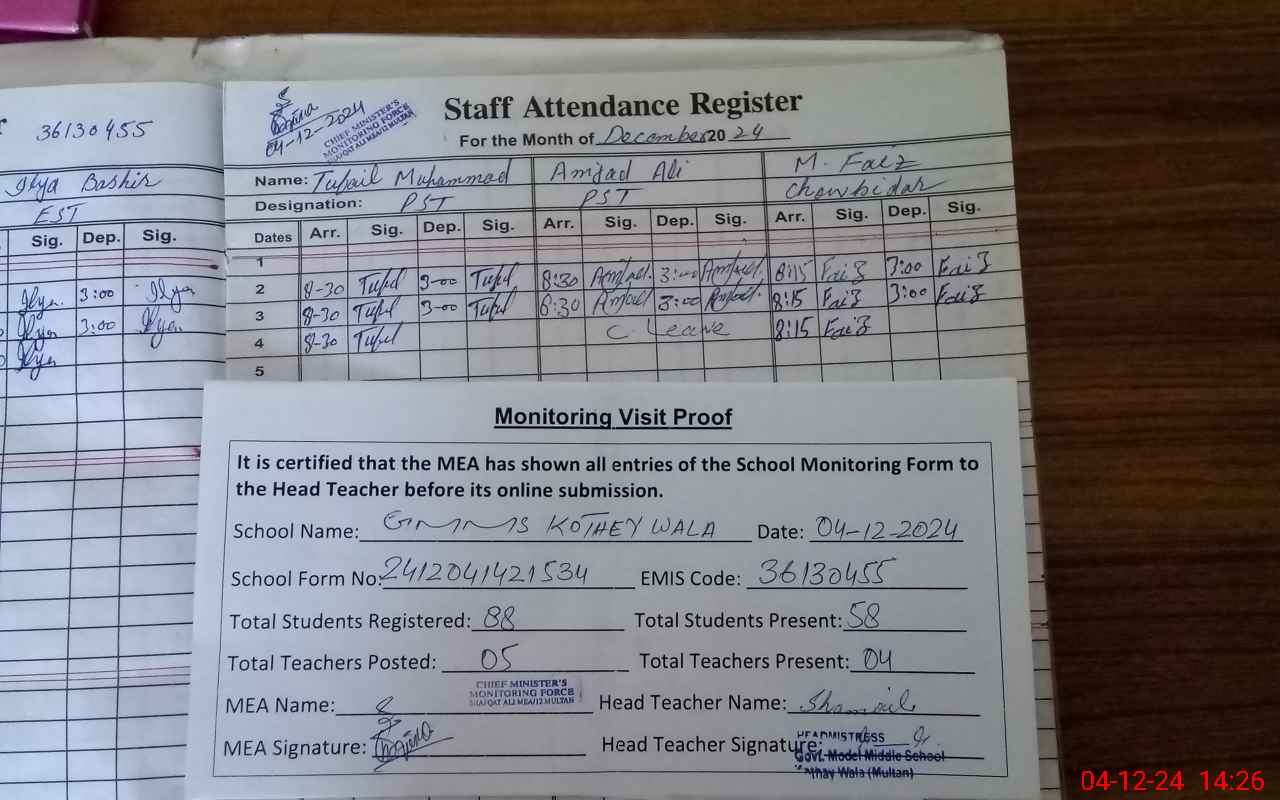 36130455
Ilya Bashir
EST
Sig. Dep. Sig.
Ilya 3:00 Ilya
Ilya 3:00 Ilya
Ilya
04-12-2024
CHIEF MINISTER'S
MONITORING FORCE
SHAFQAT ALI MEA/12 MULTAN
Staff Attendance Register
For the Month of December 2024
Name: Tufail Muhammad Amjad Ali M. Faiz
Designation: PST PST Chowkidar
Dates Arr. Sig. Dep. Sig. Arr. Sig. Dep. Sig. Arr. Sig. Dep. Sig.
1
2 8-30 Tufel 3-00 Tufel 8:30 Amjad. 3:00 Amjad. 8:15 Faiz 3:00 Faiz
3 8-30 Tufel 3-00 Tufel 8:30 Amjad 3:00 Amjad. 8:15 Faiz 3:00 Faiz
4 8-30 Tufel C. Leave 8:15 Faiz
5
Monitoring Visit Proof
It is certified that the MEA has shown all entries of the School Monitoring Form to
the Head Teacher before its online submission.
School Name: GMMS KOTHEY WALA Date: 04-12-2024
School Form No: 2412041421534 EMIS Code: 36130455
Total Students Registered: 88 Total Students Present: 58
Total Teachers Posted: 05 Total Teachers Present: 04
MEA Name: CHIEF MINISTER'S
MONITORING FORCE
SHAFQAT ALI MEA/12 MULTAN
Head Teacher Name: Shamaile
MEA Signature: Head Teacher Signature:
HEADMISTRESS
Govt. Model Middle School
Wala (Multan)
04-12-24 14:26